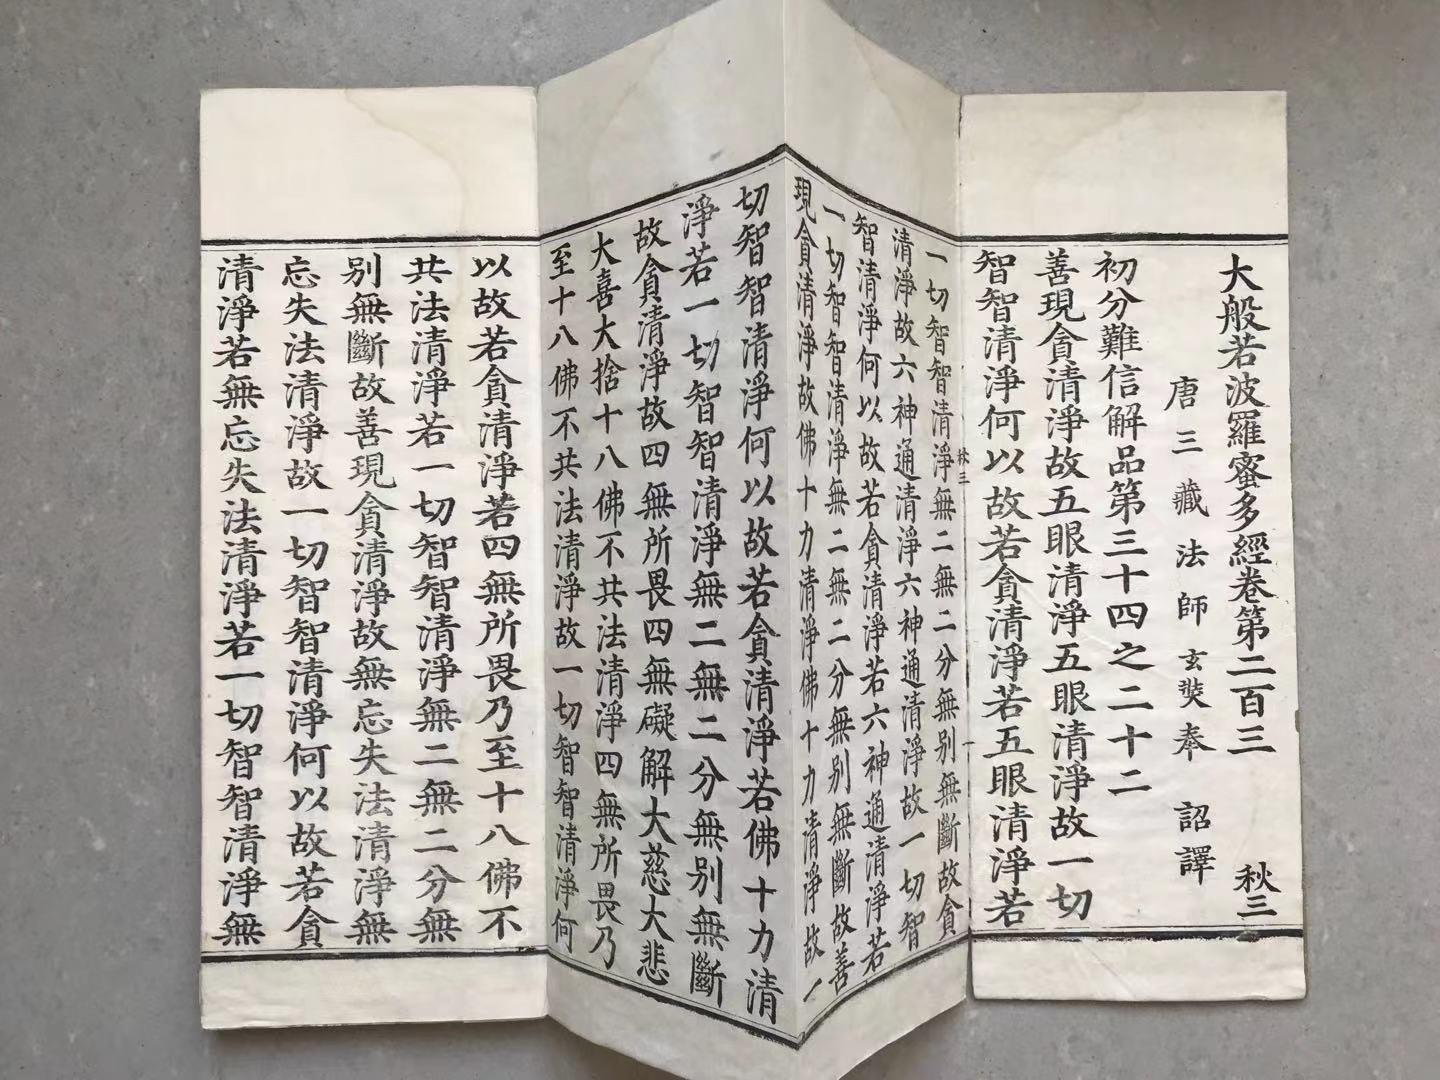 大般若波羅蜜多經卷第二百三 秋三
唐三藏法師玄奘奉 詔譯
初分難信解品第三十四之二十二
善現貪清淨故五眼清淨五眼清淨故一切
智智清淨何以故若貪清淨若五眼清淨若
秋三 一
一切智智清淨無二無二分無別無斷故貪
清淨故六神通清淨六神通清淨故一切智
智清淨何以故若貪清淨若六神通清淨若
一切智智清淨無二無二分無別無斷故善
現貪清淨故佛十力清淨佛十力清淨故一
切智智清淨何以故若貪清淨若佛十力清
淨若一切智智清淨無二無二分無別無斷
故貪清淨故四無所畏四無礙解大慈大悲
大喜大捨十八佛不共法清淨四無所畏乃
至十八佛不共法清淨故一切智智清淨何
以故若貪清淨若四無所畏乃至十八佛不
共法清淨若一切智智清淨無二無二分無
別無斷故善現貪清淨故無忘失法清淨無
忘失法清淨故一切智智清淨何以故若貪
清淨若無忘失法清淨若一切智智清淨無